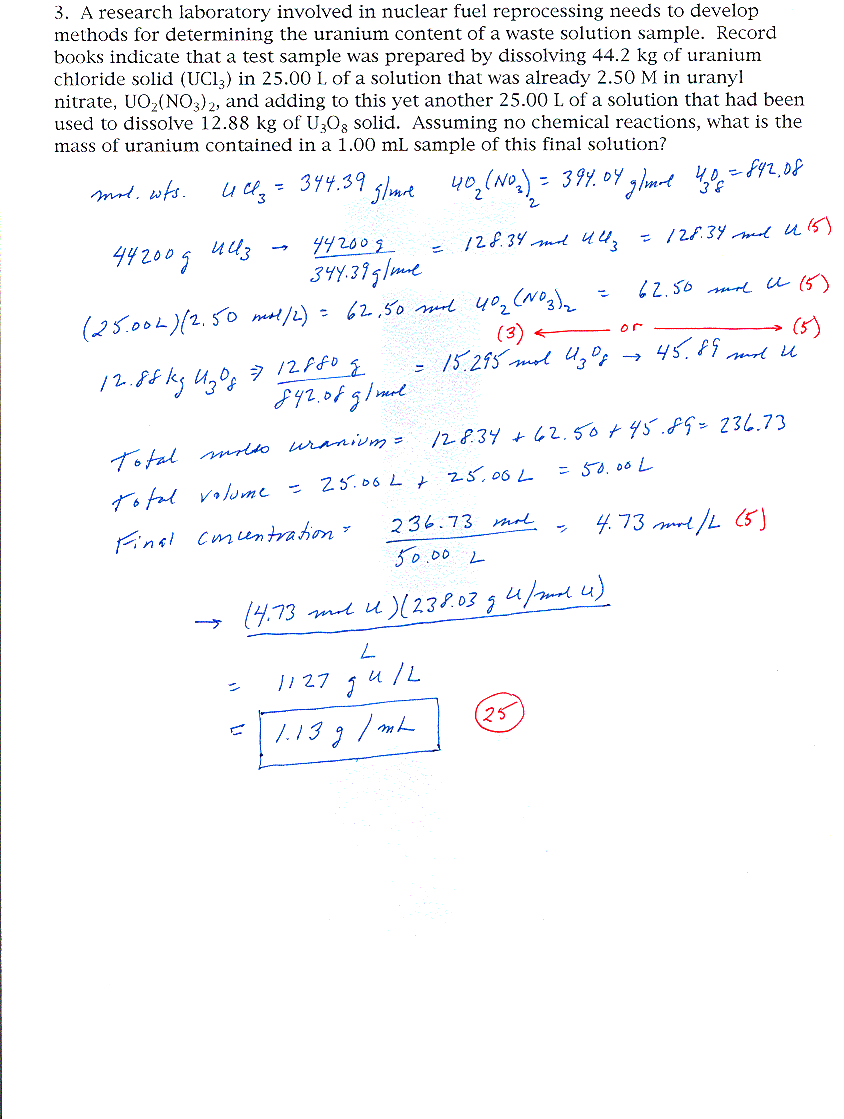 3. A research laboratory involved in nuclear fuel reprocessing needs to develop
methods for determining the uranium content of a waste solution sample. Record
books indicate that a test sample was prepared by dissolving 44.2 kg of uranium
chloride solid (UCl₃) in 25.00 L of a solution that was already 2.50 M in uranyl
nitrate, UO₂(NO₃)₂, and adding to this yet another 25.00 L of a solution that had been
used to dissolve 12.88 kg of U₃O₈ solid. Assuming no chemical reactions, what is the
mass of uranium contained in a 1.00 mL sample of this final solution?
mol. wts. UCl₃ = 344.39 g/mol UO₂(NO₃)₂ = 394.04 g/mol U₃O₈ = 842.08
44200 g UCl₃ → 44200 g / 344.39 g/mol = 128.34 mol UCl₃ = 128.34 mol U (5)
(25.00L)(2.50 mol/L) = 62.50 mol UO₂(NO₃)₂ = 62.50 mol U (5)
(3) ← or → (5)
12.88 kg U₃O₈ ⇒ 12880 g / 842.08 g/mol = 15.295 mol U₃O₈ → 45.89 mol U
Total moles uranium = 128.34 + 62.50 + 45.89 = 236.73
Total volume = 25.00 L + 25.00 L = 50.00 L
Final concentration = 236.73 mol / 50.00 L = 4.73 mol/L (5)
→ (4.73 mol U)(238.03 g U/mol U) / L
= 1127 g U/L
= 1.13 g/mL (25)